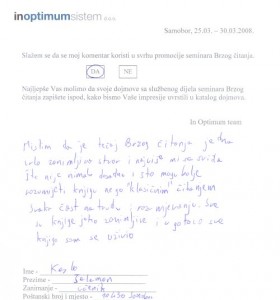 inoptimumsistem d.o.o.
Samobor, 25.03. – 30.03.2008.
Slažem se da se moj komentar koristi u svrhu promocije seminara Brzog čitanja.
DA NE
Najljepše Vas molimo da svoje dojmove sa službenog dijela seminara Brzog
čitanja zapišete ispod, kako bismo Vaše impresije uvrstili u katalog dojmova.
In Optimum team
Mislim da je tečaj Brzog čitanja jedna
vrlo zanimljiva stvar i najviše mi se sviđa
što nije nimalo dosadno i što mogu bolje
razumijeti knjigu nego "klasičnim" čitanjem
Svaka čast na trudu i razumijevanju. Sve
su knjige jako zanimljive i u gotovo sve
knjige sam se uživio
Ime -
Prezime -
Zanimanje - učenik
Poštanski broj i mjesto - 10430